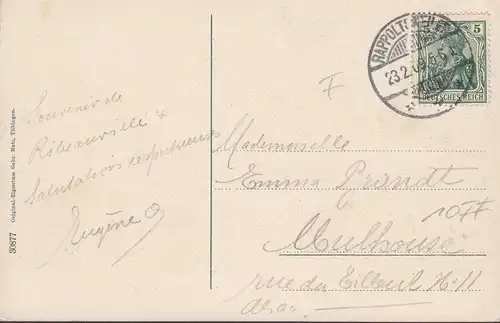 Souvenir de
Ribeauvillé &
Salutations respectueuses
Eugène
30877 Original-Eigentum Gebr. Metz, Tübingen.
RAPPOLTSWEILER
23.2.
5
DEUTSCHES REICH
F
Mademoiselle
Emma Brandt
10FF
Mulhouse
rue du Tilleul No 11
Alsace